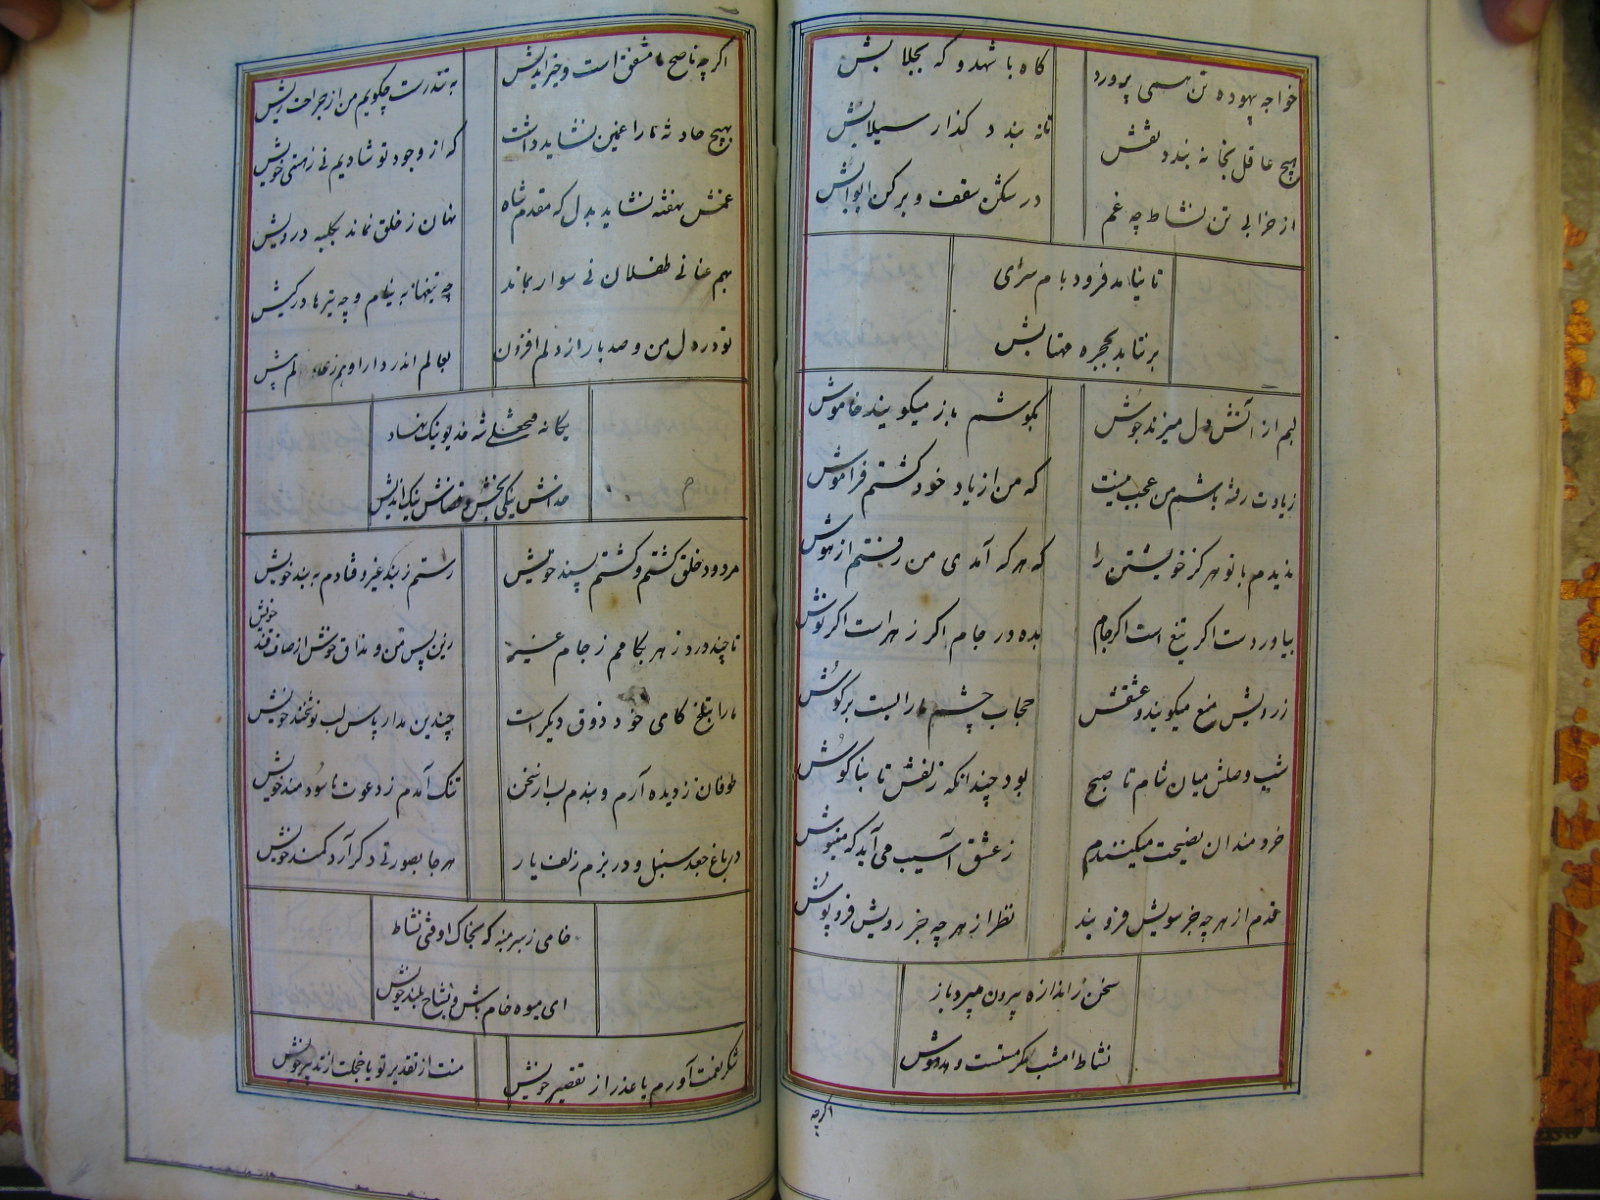 خواجه بیهوده تن همی پرورد
کاه باشهد و که بجلابش
هیچ عاقل بخانه بندد نقش
تانه بندد گذار سیلابش
از خرابی تن نشاط چه غم
در شکن سقف و برکن ابوابش
تا نیامد فرود بام سرای
برنتابد بحجره مهتابش
لبم از آتش دل میزند جوش
بکوشم باز میگویند خاموش
زیادت رفته باشم من عجب نیست
که من از یاد خود گشتم فراموش
ندیدم با تو هرگز خویشتن را
که هرگه آمدی من رفتم از هوش
بیاور دست اگر تیغ است اگر جام
بده در جام اگر زهر است اگر نوش
ز رویش منع میگویند و عشقش
حجاب چشم ما را بست بر گوش
شب وصلش میان شام تا صبح
بود چندانکه زلفش تا بناگوش
خردمندان نصیحت میکنندم
ز عشق آسیب می آید که منیوش
قدم از هر چه جز سویش فرو بند
نظر از هر چه جز رویش فرو پوش
سخن ز اندازه بیرون میبرد باز
نشاط امشب مگر مستست و مدهوش
اگرچه
اگر چه ناصح ما مشفق است و خیراندیش
به تندرست چگویم من از جراحت ریش
بهیچ حادثه ما را غمین نشاید داشت
که از وجود تو شادیم نی ز هستی خویش
غمش نهفته نشاید بدل که مقدم شاه
نهان ز خلق نماند بکلبه درویش
بهم عنانی طفلان نی سوار بماند
چه تیغها به نیام و چه تیرها در کیش
تو در دل من و صد بار از دلم افزون
بعالم اندر دارا و هم ز عالم پیش
یگانه فتحعلی شه خدیو نیک نهاد
خداش نیکی بخش و قضاش نیک اندیش
مردود خلق گشتم و گشتم پسند خویش
رستم ز بند غیر و فتادم به بند خویش
تا چند درد زهر بکامم ز جام غیر
زین پس من و مذاق خوش از صاف قند خویش
ما را بتلخ کامی خود ذوق دیگر است
چندین مدار پاس لب نوشخند خویش
طوفان ز دیده آرم و بندم لب از سخن
تنگ آمدم ز دعوت ناسودمند خویش
در باغ جعد سنبل و در بزم زلف یار
هر جا بصورتی دگر آرد کمند خویش
خامی ز سر منه که بخاک اوفتی نشاط
ای میوه خام باش و بشاخ بلند خویش
شکر نعمت آورم یا عذر از تقصیر خویش
منت از تقدیر تو یا خجلت از تدبیر خویش